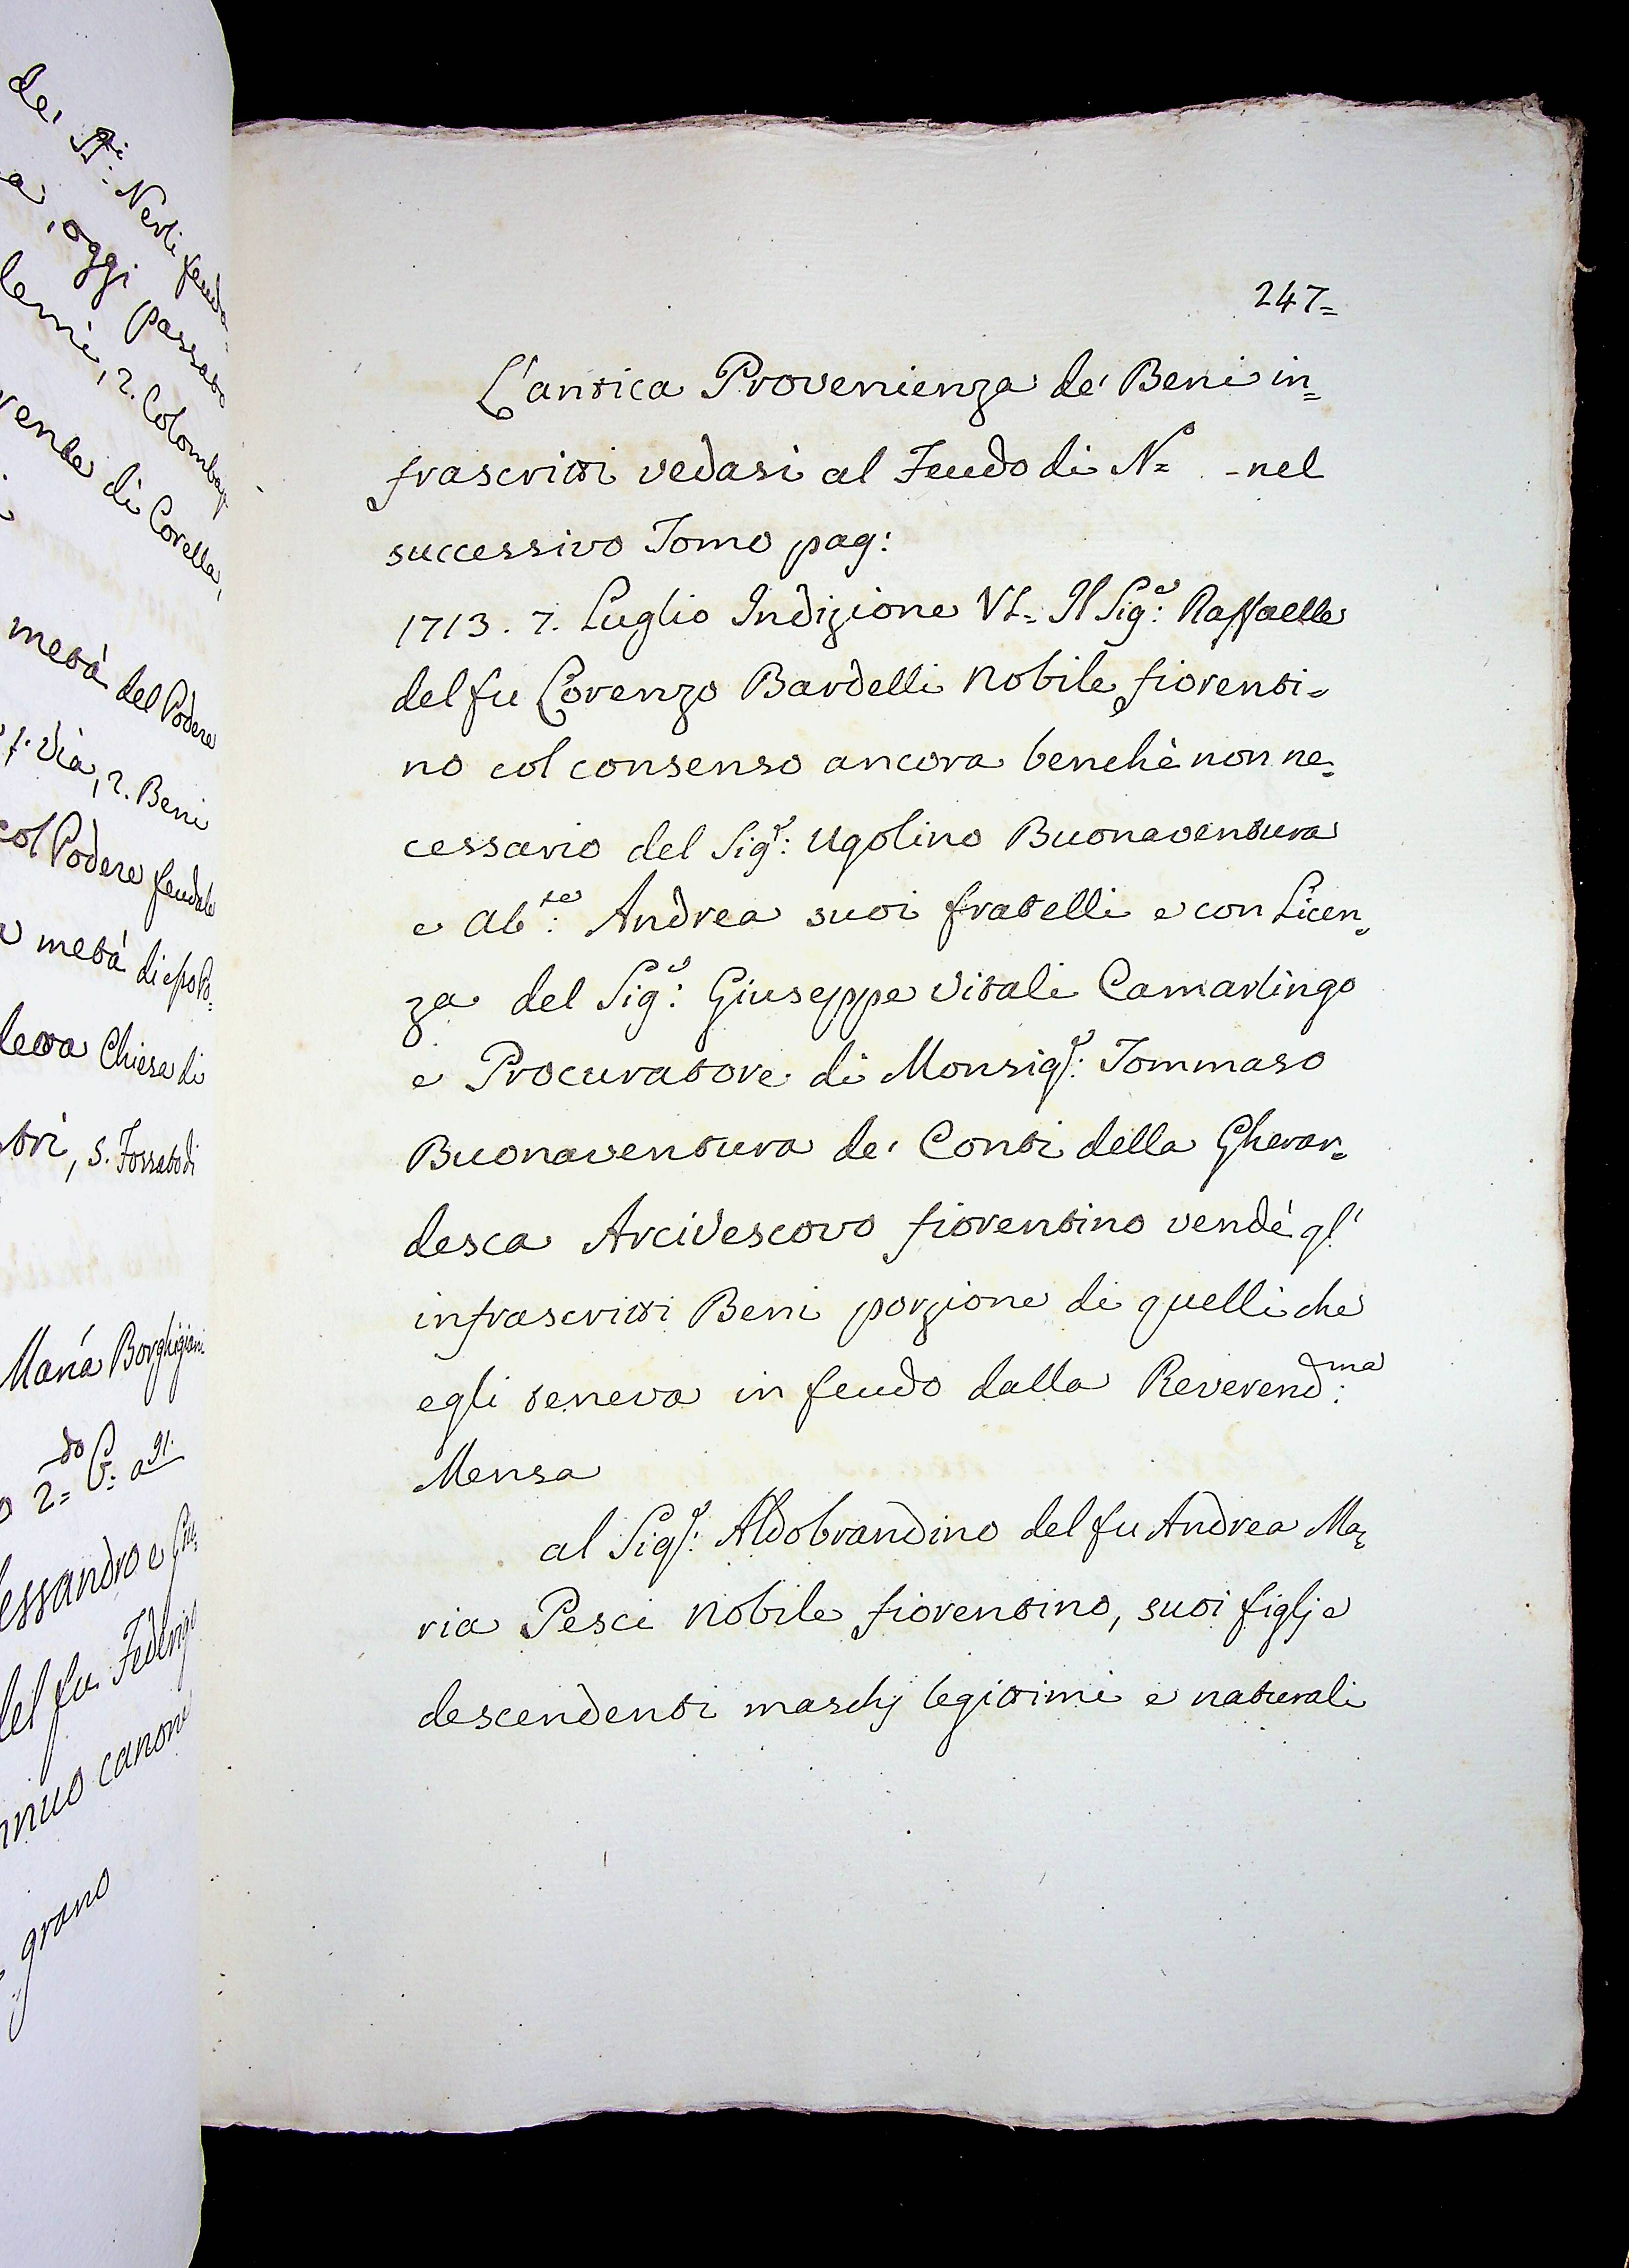 de' SS.ri Nerli feuda-
a, oggi passato
lemi, 2. Colombaj
vende di Corella,
metà del Podere
1. Via, 2. Beni
col Podere feudale
metà di esso Po=
detta Chiesa di
tri, 5. Fossato di
Maria Borghigiani
2=do C: a 91.
lessandro e Giu=
del fu Federigo
nnuo canone
grano
247=
L'antica Provenienza de' Beni in=
frascritti vedasi al Feudo di N= - nel
successivo Tomo pag:
1713. 7. Luglio Indizione VI= Il Sig.e: Raffaelle
del fu Lorenzo Bardelli Nobile fiorenti=
no col consenso ancora benchè non ne=
cessario del Sig.r: Ugolino Buonaventura
e Ab.te: Andrea suoi fratelli e con Licen=
za del Sig.r: Giuseppe Vitali Camarlingo
e Procuratore di Monsig.r: Tommaso
Buonaventura de' Conti della Gherar=
desca Arcivescovo fiorentino vendè gl'
infrascritti Beni porzione di quelli che
egli teneva in feudo dalla Reverend.ma:
Mensa
al Sig.r: Aldobrandino del fu Andrea Ma=
ria Pesci Nobile fiorentino, suoi figlj e
descendenti maschj legittimi e naturali